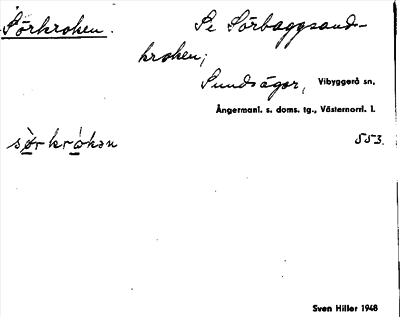 Sörkroken. Se Sörbaggsand-
kroken;
Sundsågar, Vibyggerå sn,
Ångermanl. s. doms. tg., Västernorrl. l.
sø̀rkrò̩kən 553.
Sven Hiller 1948